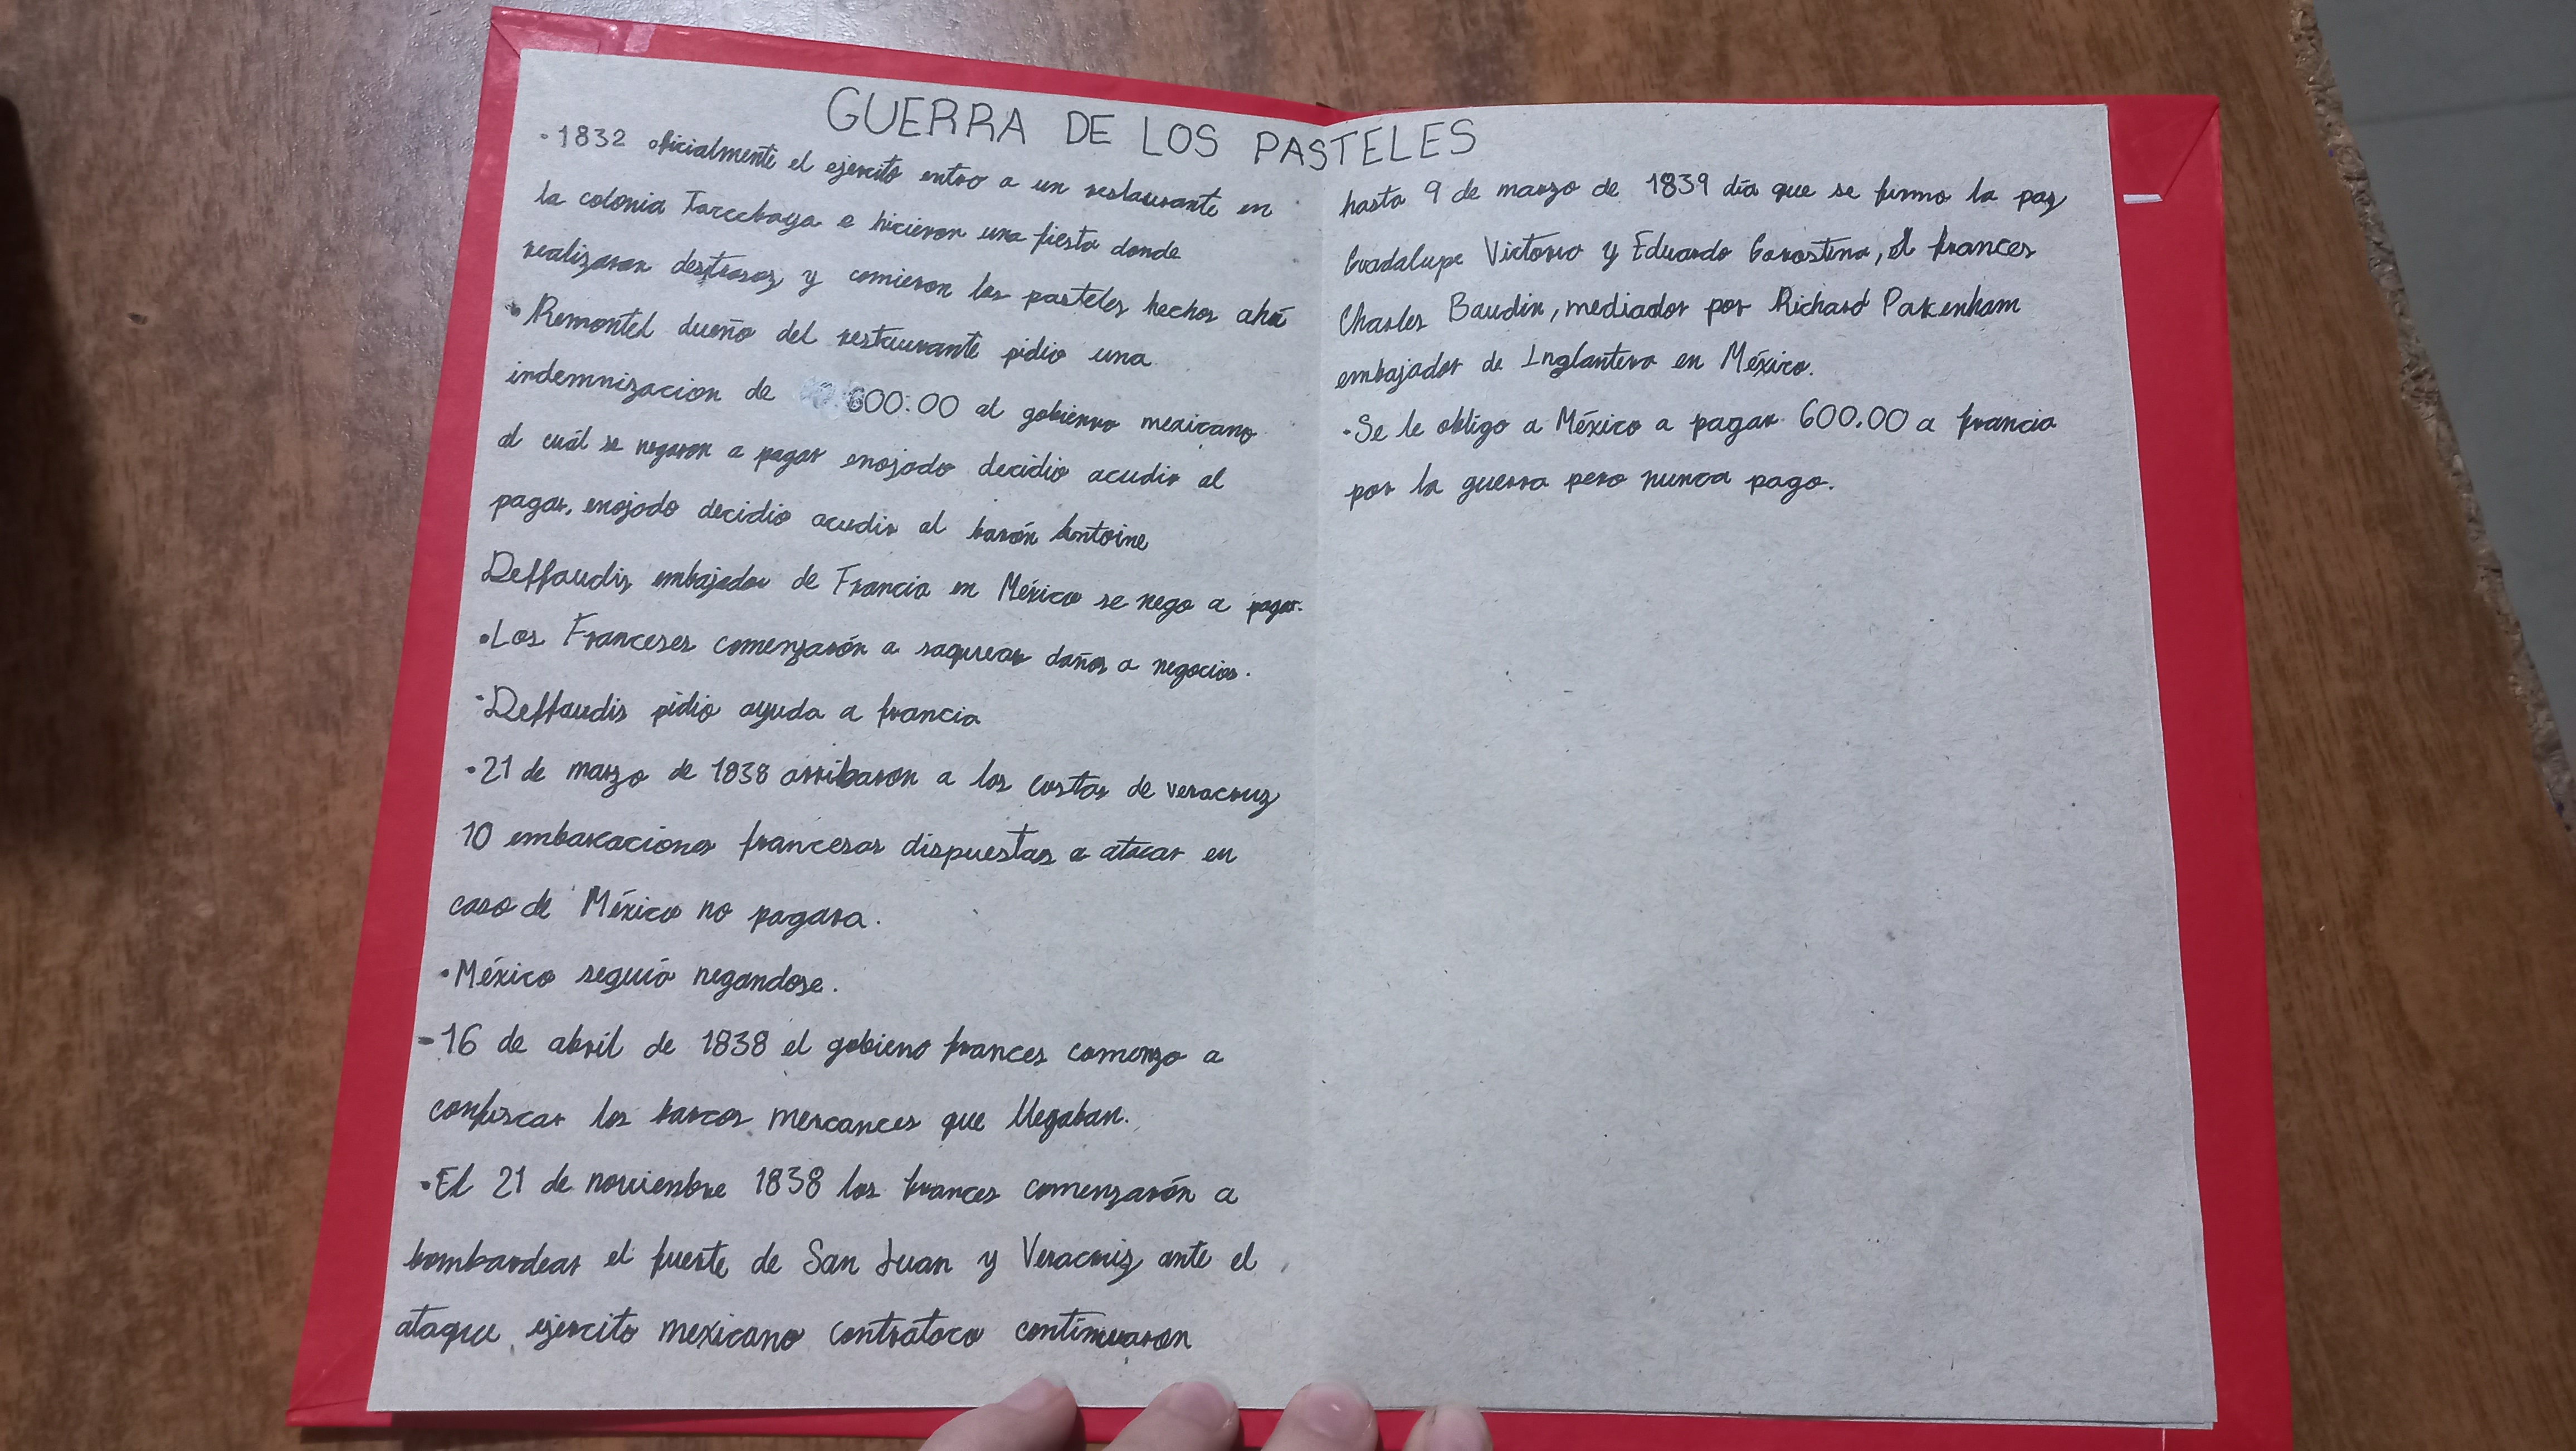 GUERRA DE LOS PASTELES
·1832 oficialmente el ejercito entro a un restaurante en
la colonia Tarcebaya e hicieron una fiesta donde
realizaron destrosos, y comieron los pasteles hechos ahí
·Remontel dueño del restaurante pidio una
indemnizacion de 600.00 al gobierno mexicano
al cuál se negaron a pagar enojado decidio acudir al
pagar, enojado decidio acudir al barón Antoine
Deffaudis embajador de Francia en México se nego a pagar.
·Los Franceses comenzarón a saquear daños a negocios.
·Deffaudis pidio ayuda a francia
·21 de marzo de 1838 arribaron a las costas de veracruz
10 embarcaciones francesas dispuestas a atacar en
caso de México no pagara.
·México seguió negandose.
-16 de abril de 1838 el gobieno frances comenzo a
confiscar los barcos mercances que llegaban.
·El 21 de noviembre 1838 los frances comenzarón a
bombardear el fuerte de San Juan y Veracruz ante el
ataque ejercito mexicano contrataco continuaron
hasta 9 de marzo de 1839 día que se firmo la paz
Guadalupe Victorio y Eduardo Garostina, el frances
Charles Baudin, mediador por Richard Pakenham
embajador de Inglantera en México.
·Se le obligo a México a pagar 600.00 a francia
por la guerra pero nunca pago.